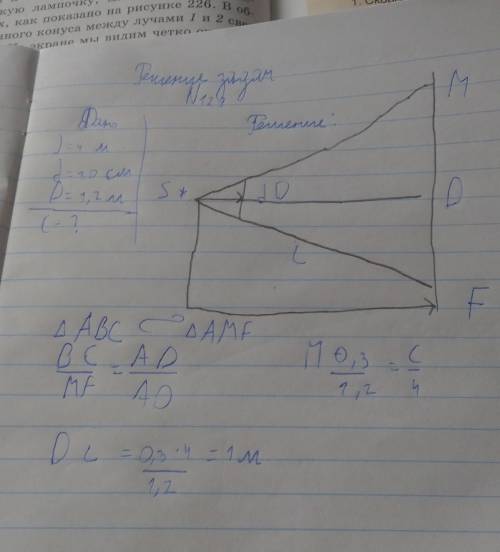 кую лампочку,
х, как показано на рисунке 226. В об.
нного конуса между лучами 1 и 2 све
экране мы видим четко
Решение задач
Дано
Решение:
l=4 м
d=20 см
D=1,2 м
l-?
S*
M
dD
D
L
F
△ABC ∽ △AMF
BC/MF = AD/AO
П 0,3/1,2 = c/4
D L = 0,3·4/1,2 = 1м